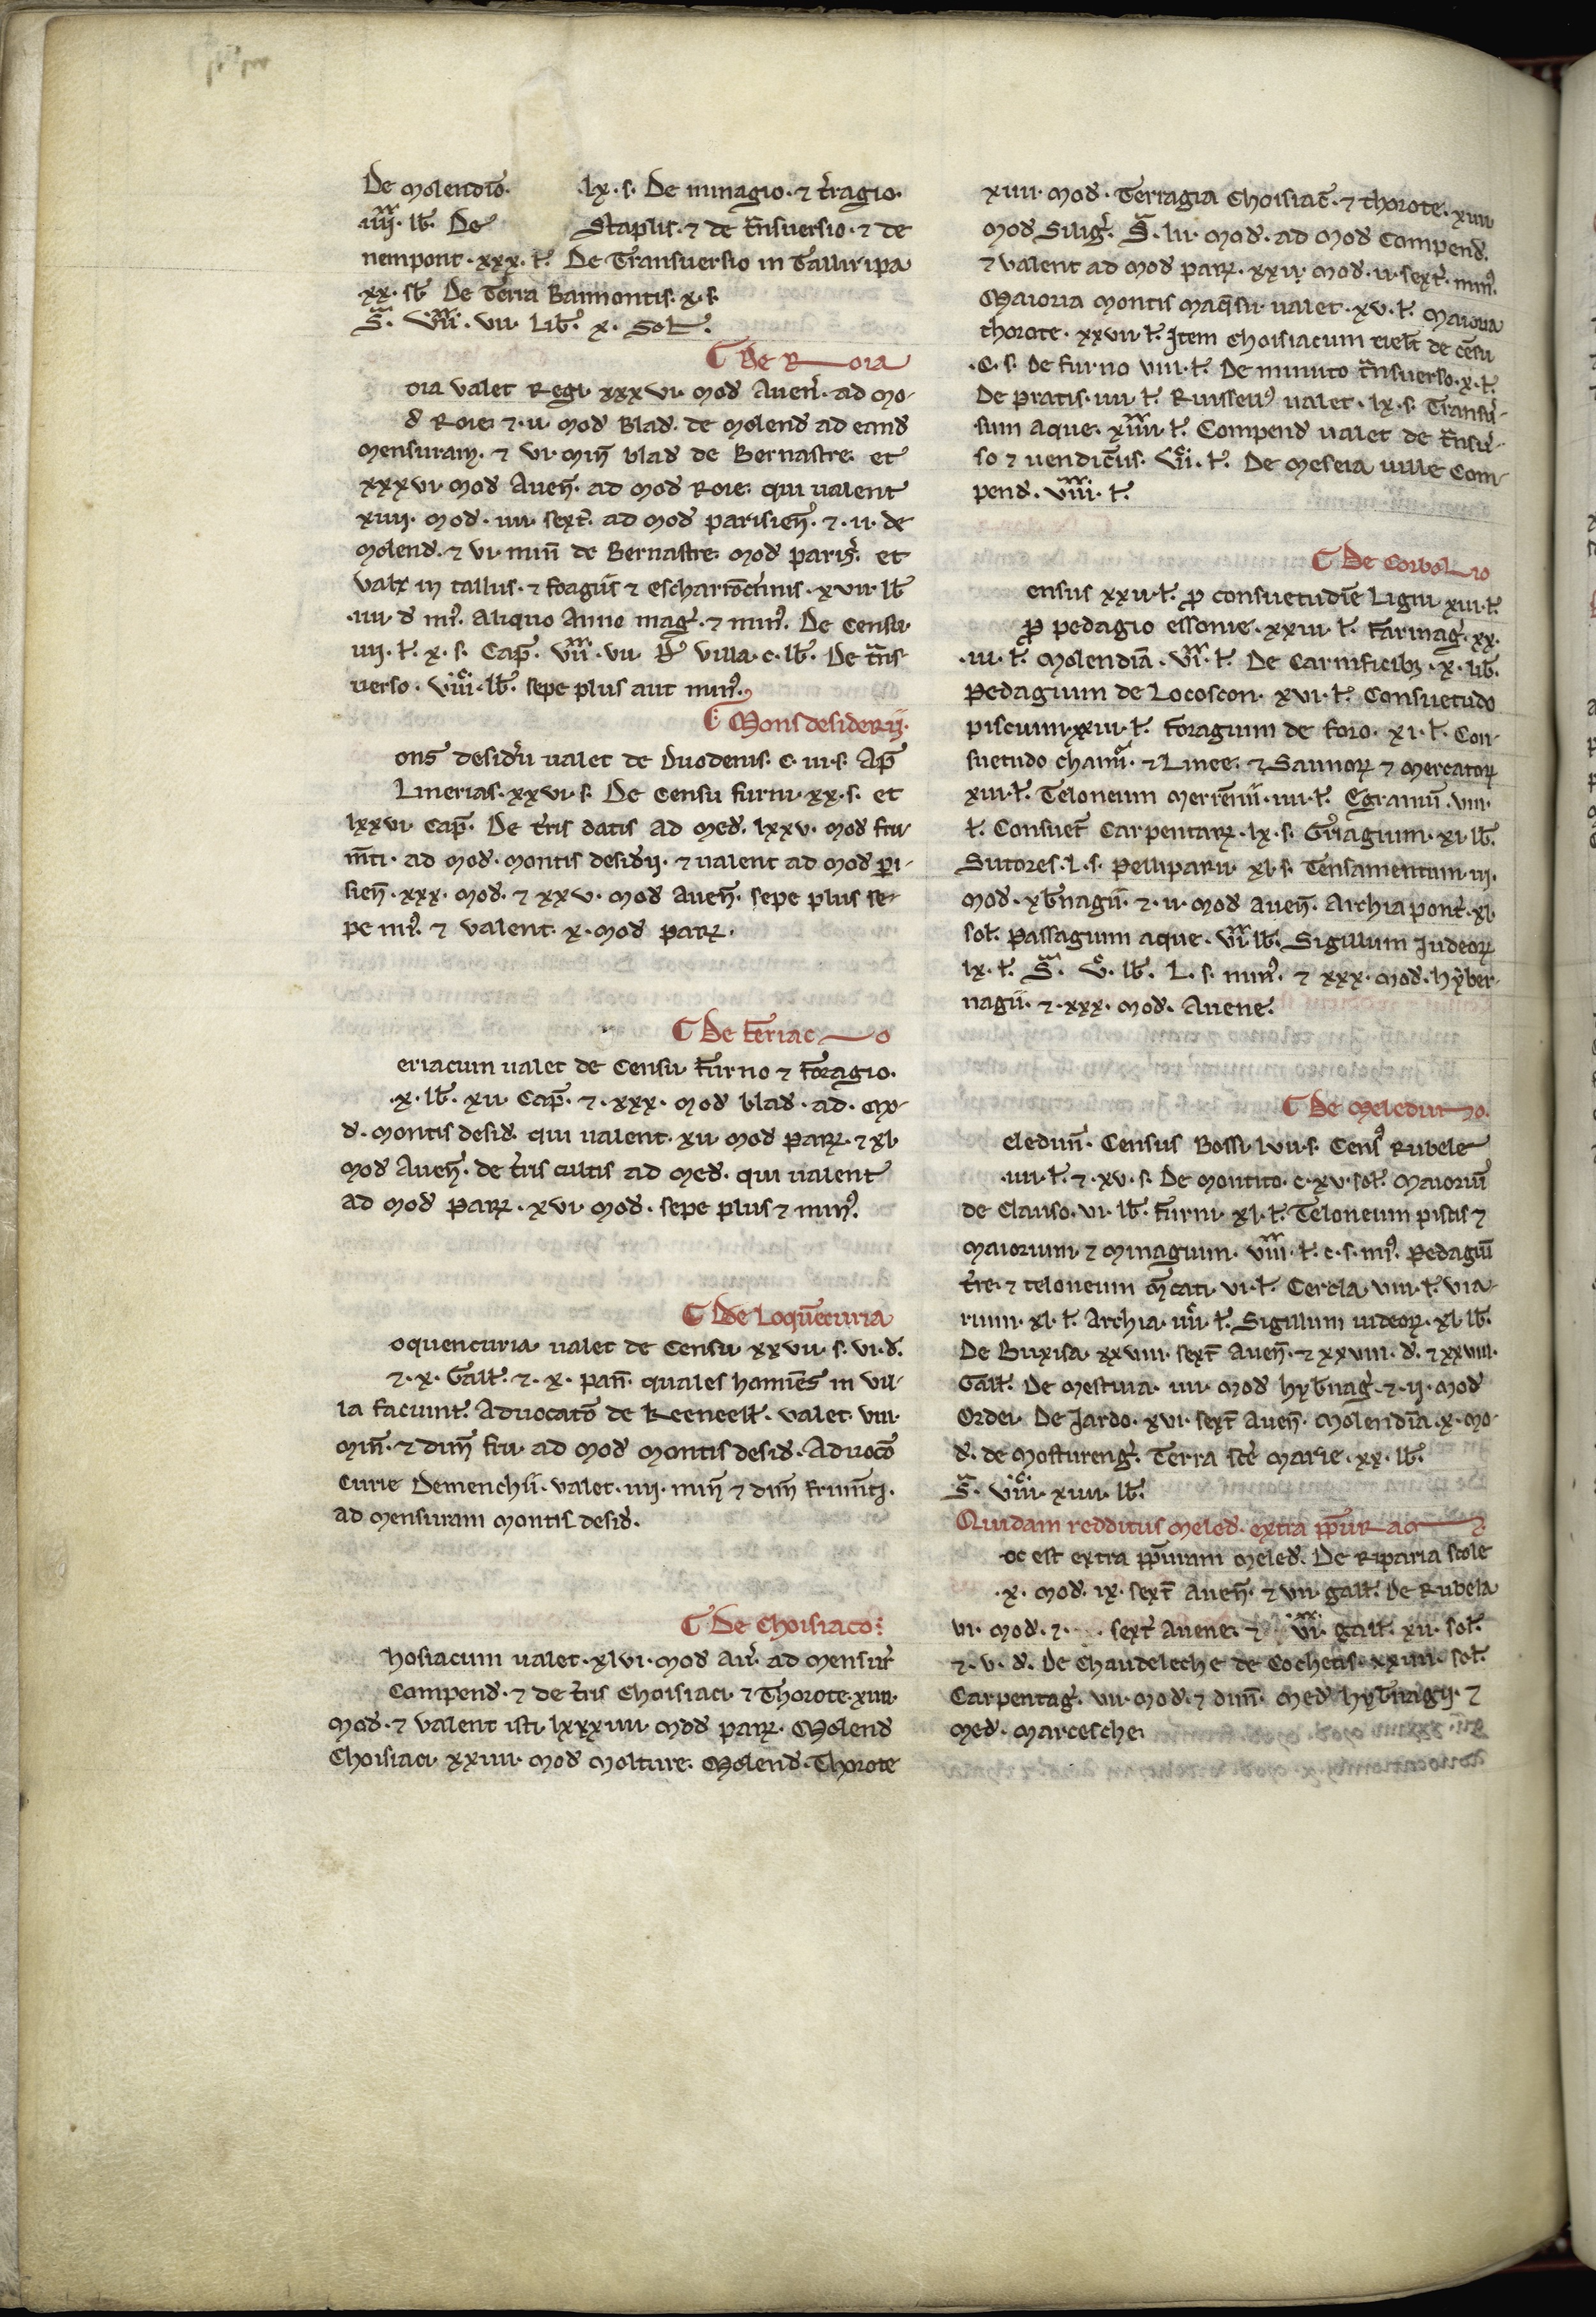 De molendiō. .lx. s. De minagio. ⁊ t̉ragio.
.iiii.xx lb̃. De Staplis. ⁊ de t̃nsuersio. ⁊ de
nempont. xxx. ł. De Transuersio in Talliripa
.xx. sł. De Terra Baimontis. x. s.
S̃. vii.xx. vii. Lib̃. x. Sol.
De Roia
oia valet Regi. xxxvi. mod Auen̉. ad mo-
d Roie. ⁊. ii. mod Blad. de molend ad eand
mensuram. ⁊ vi. min̄ blad de Bernastre. et
xxxvi. mod Auen̄. ad mod Roie. qui ualent
xiiii. mod. iiii. sext̉. ad mod parisien̄. ⁊. ii. de
molend. ⁊ vi. min̄ de Bernastre. mod paris̉. et
Valꝫ in tallus. ⁊ foagiis ⁊ eschar̄rōctinis. xvii. lb̃
.iiii. d mi⁹. aliquo Anno mag̉. ⁊ min⁹. De Censu.
iiii. ł. x. s. Cap̄. vii.xx. vii. villa. c. lb̃. De t̃ns-
uerso. viii.c lb̃. sepe plus aut min⁹.
Mons desiderij.
ons desid̉ii ualet de Duodenis. c. iii. s. Ap̄
Linerias. xxvi. s. De Censu furni. xx. s. et
lxxvi. Cap̄. De t̉ris datis ad med. lxxv. mod fru-
m̄ti. ad mod. montis desid̉ii. ⁊ valent ad mod pari-
sien̄. xxx. mod. ⁊ xxv. mod Auen̄. sepe plus se-
pe mi⁹. ⁊ valent. x. mod Parꝝ.
De feriaco
eriacum valet de Censu. furno ⁊ foragio.
.x. lb̃. xii. Cap̄. ⁊. xxx. mod blad. ad. mo-
d. montis desid. qui ualent. xii. mod Parꝝ. ⁊ xl.
mod Auen̄. de t̉ris cultis ad med. qui ualent
ad mod Parꝝ. xvi. mod. sepe plus ⁊ min⁹.
De Loquēcuria
oquencuria. ualet de Censu. xxvii. s. vi. d.
⁊. x. Gałł. ⁊. x. pan̄. quales homiēs in vil-
la faciunt. Aduocatō de Keeneełł. valet. viii.
min̄. ⁊ dim̄ fru. ad mod montis desid. Aduocō
Curie Demenchli. valet. iiij. min̄ ⁊ dim̄ frum̄ti.
ad mensuram montis desid.
De Choisiaco
hosiacum ualet. xlvi. mod Aủ. ad mensur̉
Compend. ⁊ de t̉ris Choisiaci. ⁊ Thorote. xiiii.
mod. ⁊ valent isti. lxxxiiii. mod parꝝ. Molend
Choisiaci. xxiiii. mod molture. Molend. Thorote
xiiii. mod. Terragia Choisiac̄. ⁊ thorote. xiiii.
mod Silig̉. S̃. lii. mod. ad mod Compend.
⁊ valent ad mod parꝝ. xxii. mod. ii. sext̉. min⁹.
Maioria montis maq̃sii. ualet. xv. ł. Maioria
thorote. xxvii. ł. Item Choisiacum de cēsu
.c. s. De furno viii. ł. De minuto t̃nsuerso. x. ł.
De pratis. iiii. ł. Ruisseli⁹ ualet. lx. s. Transủ-
sum aque. xiiii.xx ł. Compend ualet de t̃nsủ-
so ⁊ uendic̄us. vi.c. ł. De meseia uille Com-
pend. viii.xx. ł.
De Corbolio
ensus xxii. ł. ꝓ consuetudīe Ligni. xiii. ł.
ꝓ pedagio essonie. xxiii. ł. Farinag̉. xx.
.iii. ł. Molendiā. vi.xx. ł. De Carnificibꝫ. x. lib̃.
Pedagium de Locoscon. xvi. ł. Consuetudo
piscium. xxiii. ł. Foragium de foro. xi. ł. Con-
suetudo chanủ. ⁊ Linee. ⁊ Saunorꝝ ⁊ mercatorꝝ
xiii. ł. Teloneum merrēnii. iiii. ł. Egraniū. viii.
ł. Consuet̄ Carpentarꝝ. lx. s. G̉riagium. xi. lb̃.
Sutores. l. s. Pelliparii. xl. s. Tensamentum. iij.
mod. yb̃nagii. ⁊. ii. mod auen̄. Archia pont̉. xl.
soł. Passagium aque. vi.xx lb̃. Sigillum Iudeorꝝ
lx. ł. S̃. v.c. lb̃. L. s. min⁹. ⁊ xxx. mod. hyber-
nagii. ⁊. xxx. mod. Auene.
De Meleduno.
eledun̄. Census Bossi. lvii. s. Cens⁹ Rubele
.iiii. ł. ⁊. xv. s. De montito. c. xv. soł. Maioriū
de Clauso. vi. lb̃. Furni. xl. ł. Teloneum piscis ⁊
maiorium. ⁊ minagium. viii.xx. ł. c. s. mi⁹. Pedagiū
t̉re. ⁊ teloneum m̉cati. vi. ł. Cercla. viii. ł. via-
rium. xl. ł. Archia. iiii.xx ł. Sigillum iudeorꝝ. xl. lb̃.
De Buxisa. xxviii. sext̄ Auen̄. ⁊ xxviii. d. ⁊ xxviii.
Gałł. De mestiua. iiii. mod hyb̃nag̉. ⁊. ij. mod
Ordei. De Jardo. xvi. sext̄ Auen̄. Molendia. x. mo-
d. de mostureng̉. Terra sc̄e marie. xx. lb̃.
S̃. viii.c. xiiii. lb̃.
Quidam redditus meled. extra pp̄ituram
oc est extra pp̄ituram meled. De Riparia scole
.x. mod. ix. sext̄ Auen̄. ⁊ vii. gałł. De Rubela
vi. mod. ⁊ sext̉ Auene. ⁊ vi.xx. gałł. xii. soł.
⁊. v. d. De Chaudeleche de Cochetis. xxiiii. soł.
Carpentag̉. vii. mod. ⁊ dim̄. med hyb̃nagij. ⁊
med. marcesche.